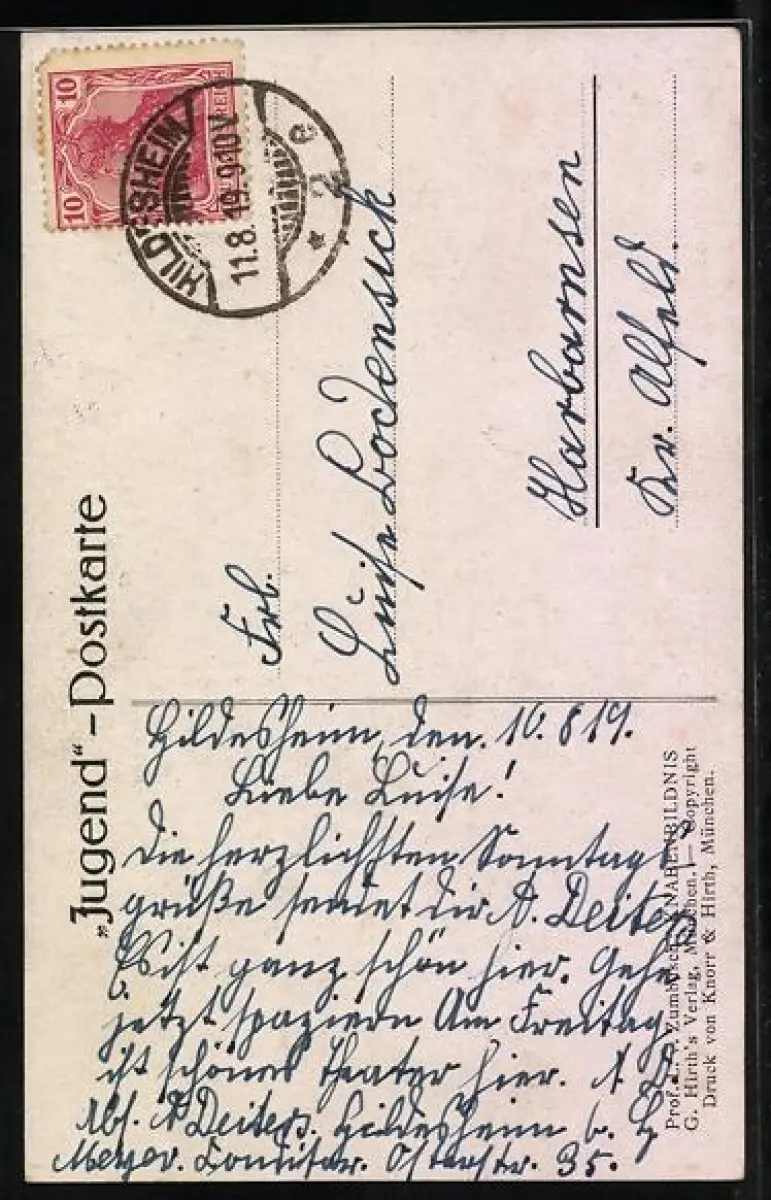 „Jugend“-Postkarte
10
10
REICH
HILDESHEIM
11.8.19. 9-10V.
* 2 e
Frl.
Luise Bodensick
Harbarnsen
Kr. Alfeld.
Hildesheim, den. 10.8 19.
Liebe Luise!
Die herzlichsten Sonntags
grüße sendet dir A. Deiters
Es ist ganz schön hier. Gehe
jetzt spazieren Am Freitag
ist schönes Theater hier. A D.
Abs. A Deiters. Hildesheim b. H
Meyer. Konditor. Osterstr. 35.
Prof. L. v. Zumbusch KNABENBILDNIS
G. Hirth's Verlag, München. — Copyright
Druck von Knorr & Hirth, München.